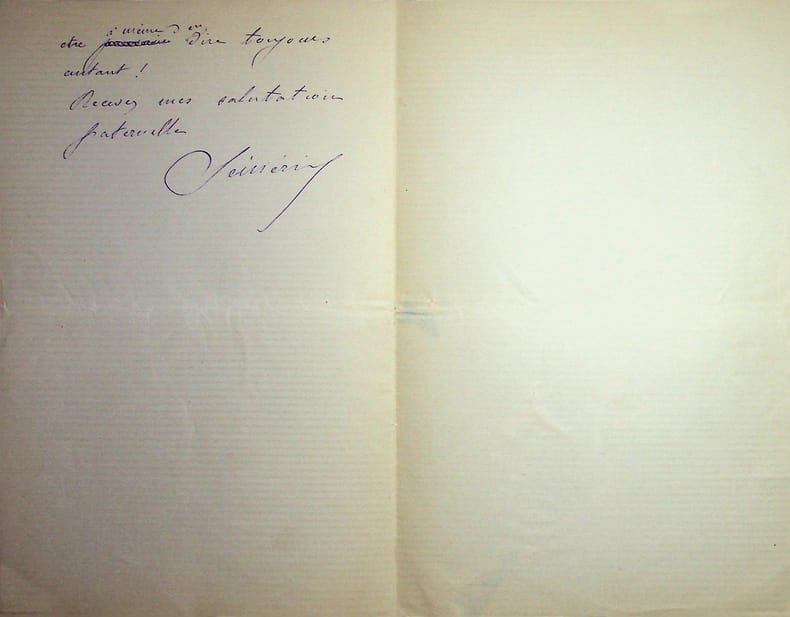 à même d'en
etre dire toujours
autant !
Recevez mes salutations
fraternelles
Séverine